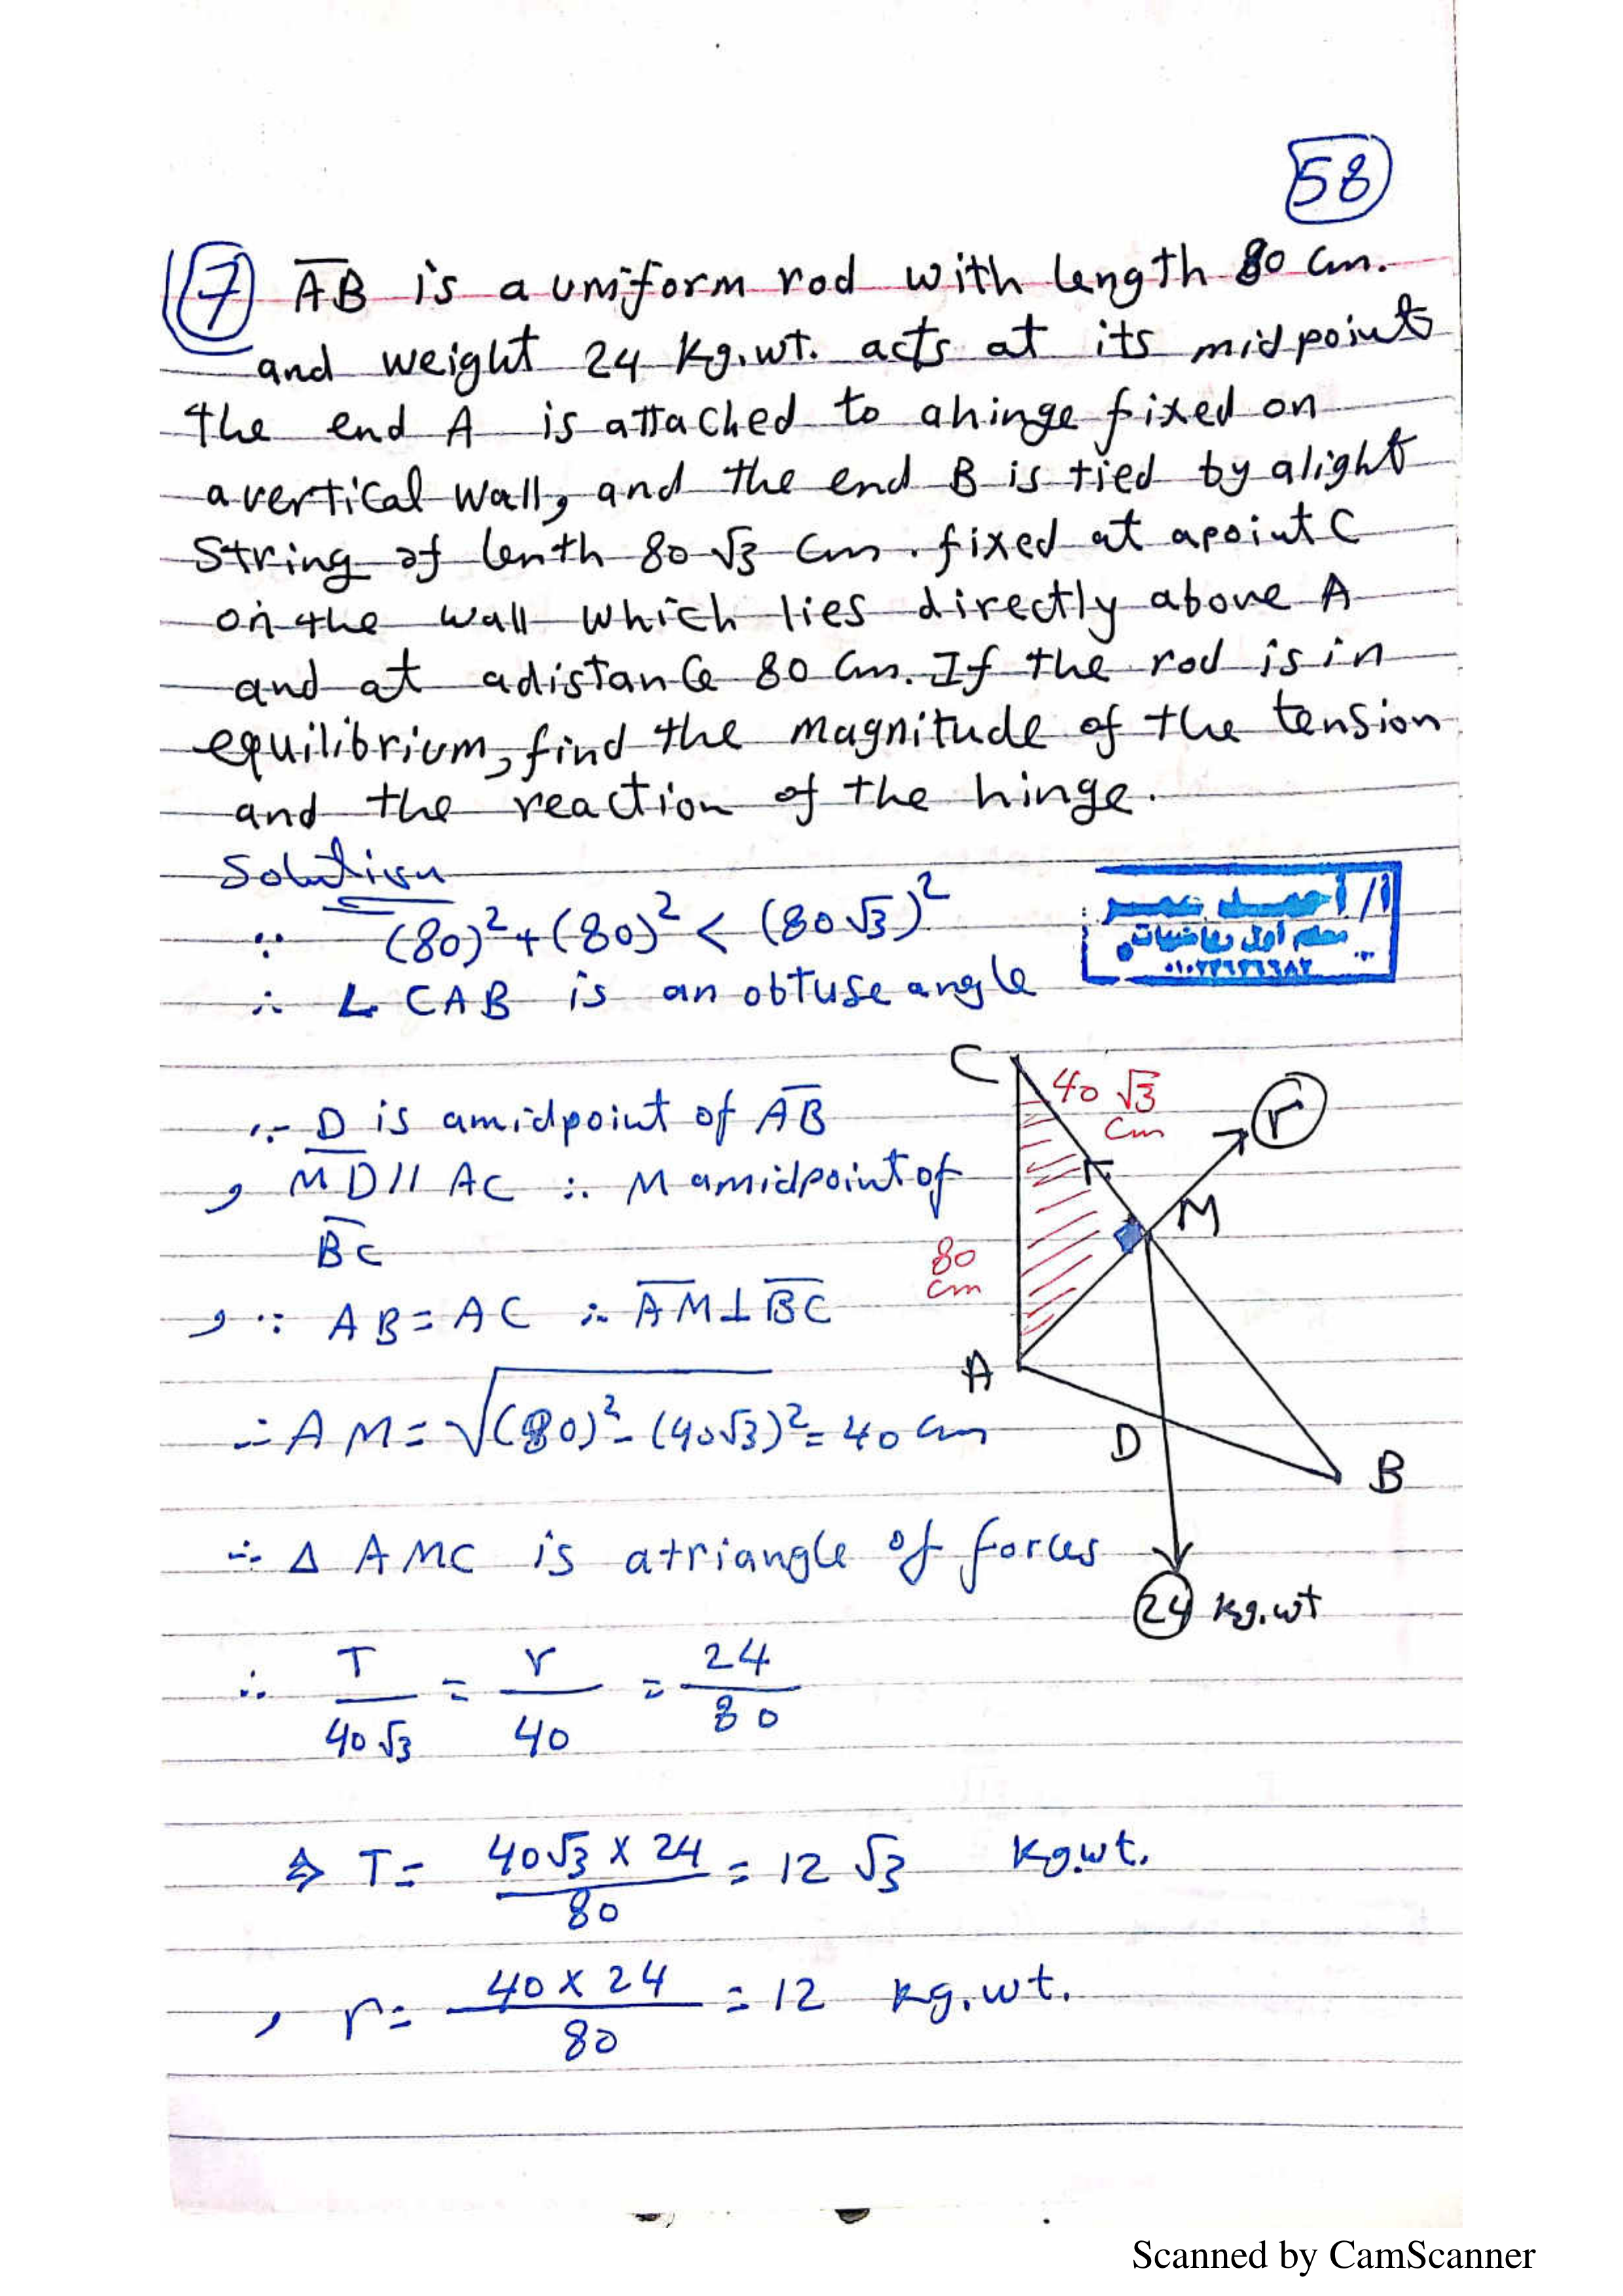 58
7 AB is a uniform rod with length 80 cm.
and weight 24 kg.wt. acts at its midpoint
the end A is attached to a hinge fixed on
a vertical wall, and the end B is tied by a light
string of lenth 80√3 cm. fixed at a point C
on the wall which lies directly above A
and at a distance 80 cm. If the rod is in
equilibrium, find the magnitude of the tension
and the reaction of the hinge.
Solution
∵ (80)² + (80)² < (80√3)²
∴ ∠ CAB is an obtuse angle
أ/ أحمد عمر
معلم أول رياضيات
∵ D is a midpoint of AB
, MD // AC ∴ M a midpoint of
BC
, ∵ AB = AC ∴ AM ⊥ BC
∴ AM = √(80)² - (40√3)² = 40 cm
∴ Δ AMC is a triangle of forces
C
40√3
cm
r
M
80
cm
A
D
B
24 kg.wt
∴ T/40√3 = r/40 = 24/80
⇒ T = 40√3 × 24/80 = 12√3 kg.wt.
, r = 40 × 24/80 = 12 kg.wt.
Scanned by CamScanner